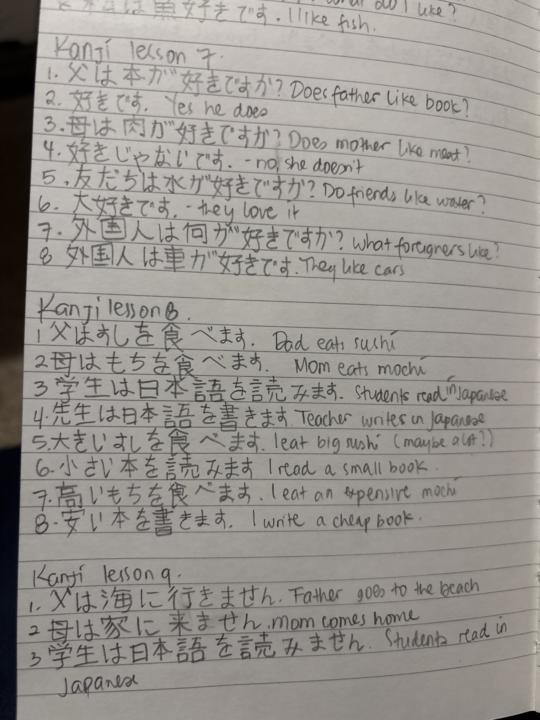 は魚好きです. I like fish.
Kanji lesson 7.
1. 父は本が好きですか? Does father like book?
2. 好きです. Yes he does
3. 母は肉が好きですか? Does mother like meat?
4. 好きじゃないです. - no, she doesn't
5. 友だちは水が好きですか? Do friends like water?
6. 大好きです. - they love it
7. 外国人は何が好きですか? What foreigners like?
8 外国人は車が好きです. They like cars
Kanji lesson 8.
1 父はすしを食べます. Dad eats sushi
2 母はもちを食べます. Mom eats mochi
3 学生は日本語を読みます. Students read in Japanese
4. 先生は日本語を書きます Teacher writes in Japanese
5. 大きいすしを食べます. I eat big sushi (maybe a lot?)
6. 小さい本を読みます I read a small book.
7. 高いもちを食べます. I eat an expensive mochi
8. 安い本を書きます. I write a cheap book.
Kanji lesson 9.
1. 父は海に行きません. Father goes to the beach
2 母は家に来ません. mom comes home
3 学生は日本語を読みません. Students read in
Japanese